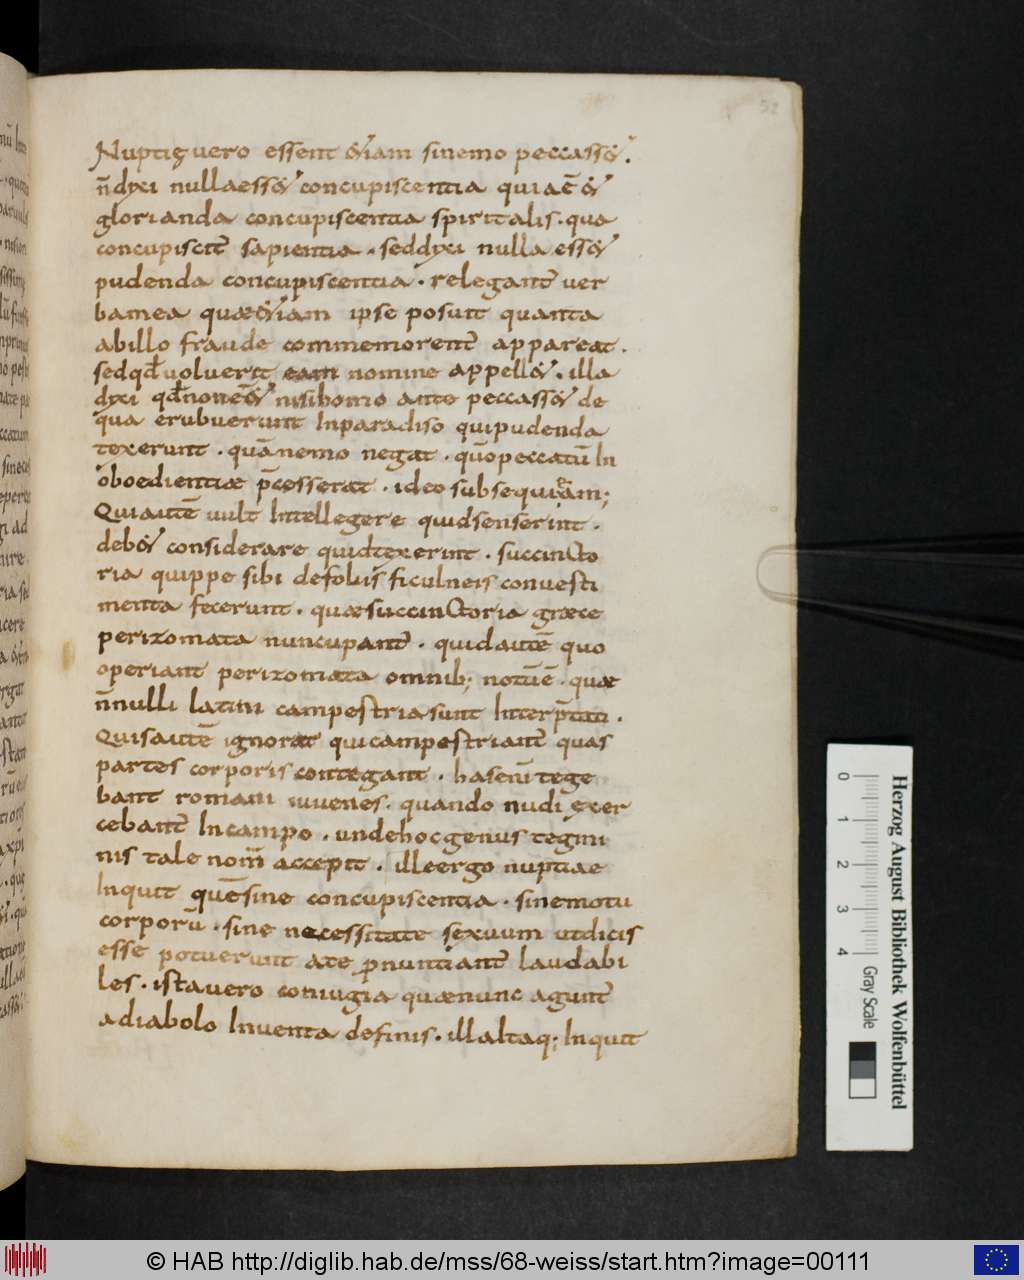 52
Nuptię uero essent &iam sinemo peccass&.
n̄dixi nullaess& concupiscentia quiaē &
glorianda concupiscentia spiritalis· qua
concupiscit̄ sapientia· seddixi nulla ess&
pudenda concupiscentia· relegant̄ uer
bamea quæ&iam ipse posuit quanta
abillo fraude commemorent̄ appareat·
sedqđuoluerit eam nomine appell&· illa
dixi qđnonē& nisihomo ante peccass& de
qua erubuerunt Inparadiso quipudenda
texerunt· quānemo negat· qūopeccatū In
oboedientiæ p̄cesserat· ideo subsequiram;
Quiautē uult Intellegere quidsenserint·
deb& considerare quidtexerint· succincto
ria quippe sibi defoliis ficulneis conuesti
menta fecerunt· quæsuccinctoria græce
perizomata nuncupant̄· quidautē quo
operiant perizomata omnib; notūē· quæ
n̄nulli latini campestria sunt Interp̄tati·
Quisautē ignorat quicampestriant̄ quas
partes corporis contegant· hasenī tege
bant romani iuuenes· quando nudi exer
cebant̄ Incampo· undehocgenus tegmi
nis tale nom̄ accepit· illeergo nuptiae
Inquit quęsine concupiscentia· sinemotu
corporū· sine necessitate sexuum utdicis
esse potuerunt ate ꝓnuntiant̄ laudabi
les· istauero coniugia quænunc agunt̄
adiabolo Inuenta definis· illaltaq; Inquit
0
1
2
3
4
Gray Scale
Herzog August Bibliothek Wolfenbüttel
© HAB http://diglib.hab.de/mss/68-weiss/start.htm?image=00111